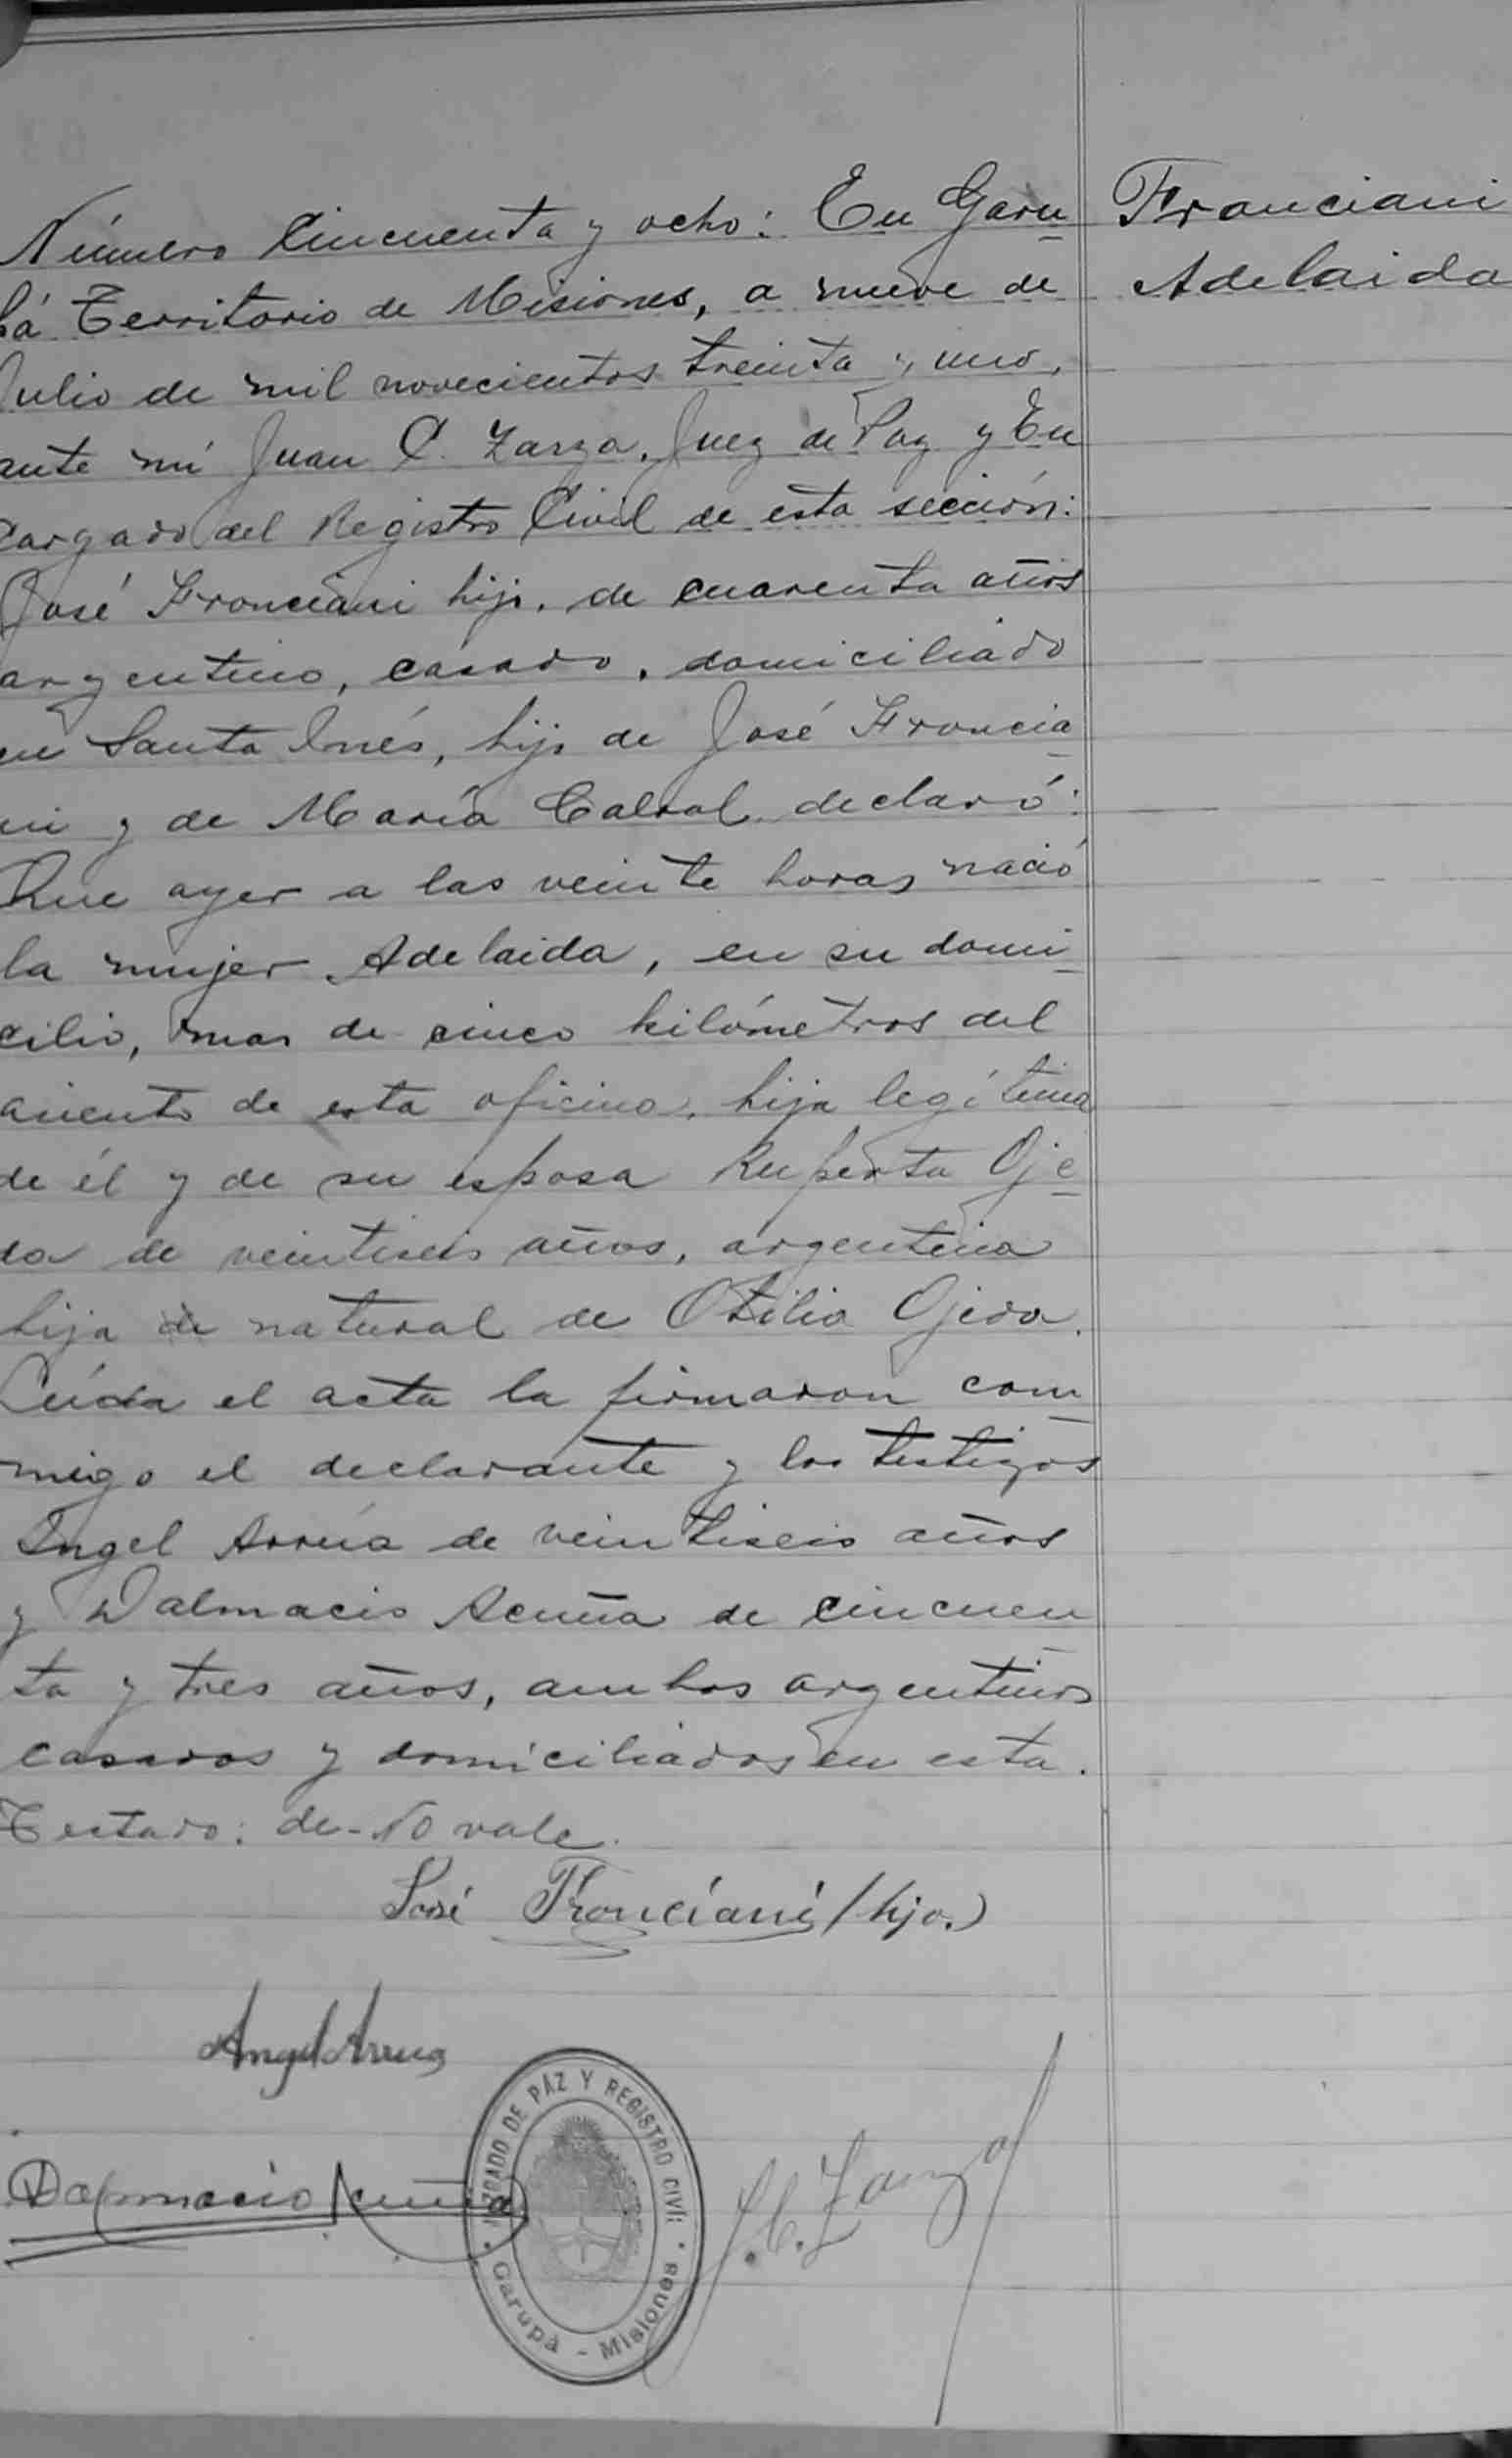 Número Cincuenta y ocho: En Garu
pá Territorio de Misiones, a nueve de
Julio de mil novecientos treinta y uno,
ante mí Juan C. Zarza, Juez de Paz y En
cargado del Registro Civil de esta sección:
José Franciani hijo, de cuarenta años
argentino, casado, domiciliado
en Santa Inés, hijo de José Francia
ni y de María Cabral declaró:
Que ayer a las veinte horas nació
la mujer Adelaida, en su domi
cilio, mas de cinco kilómetros del
asiento de esta oficina, hija legítima
de él y de su esposa Ruperta Oje
da de veintiseis años, argentina
hija de natural de Otilia Ojeda.
Leída el acta la firmaron con
migo el declarante y los testigos
Angel Arrúa de veintiseis años
y Dalmacio Acuña de cincuen
ta y tres años, ambos argentinos
casados y domiciliados en esta.
Testado: de-No vale.
José Franciani (hijo.)
Angel Arrua
Dalmacio Acuña
J.C. Zarza
JUZGADO DE PAZ Y REGISTRO CIVIL
Garupá - Misiones
Franciani
Adelaida